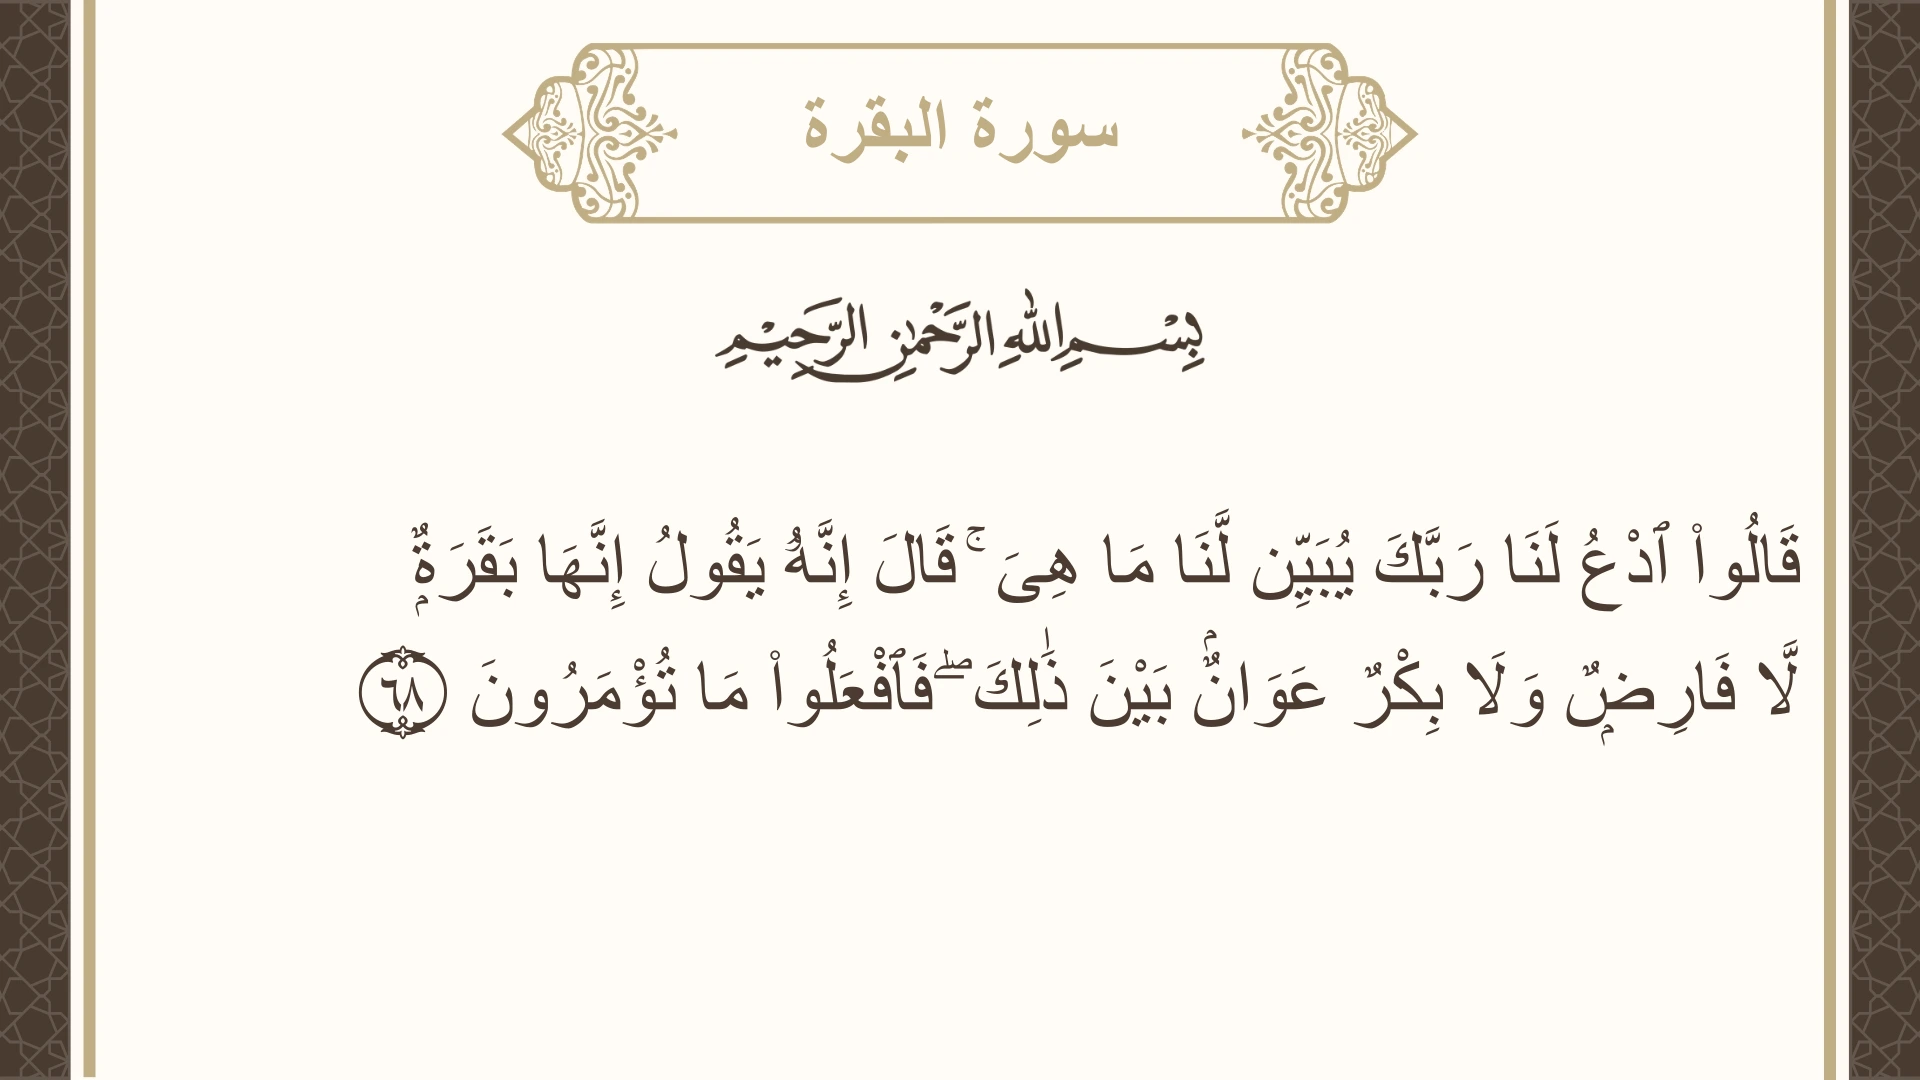 سورة البقرة
بِسْمِ اللهِ الرَّحْمٰنِ الرَّحِيْمِ
قَالُوا۟ ٱدْعُ لَنَا رَبَّكَ يُبَيِّن لَّنَا مَا هِىَ ۚ قَالَ إِنَّهُۥ يَقُولُ إِنَّهَا بَقَرَةٌۭ
لَّا فَارِضٌۭ وَلَا بِكْرٌ عَوَانٌۢ بَيْنَ ذَٰلِكَ ۖ فَٱفْعَلُوا۟ مَا تُؤْمَرُونَ ٦٨